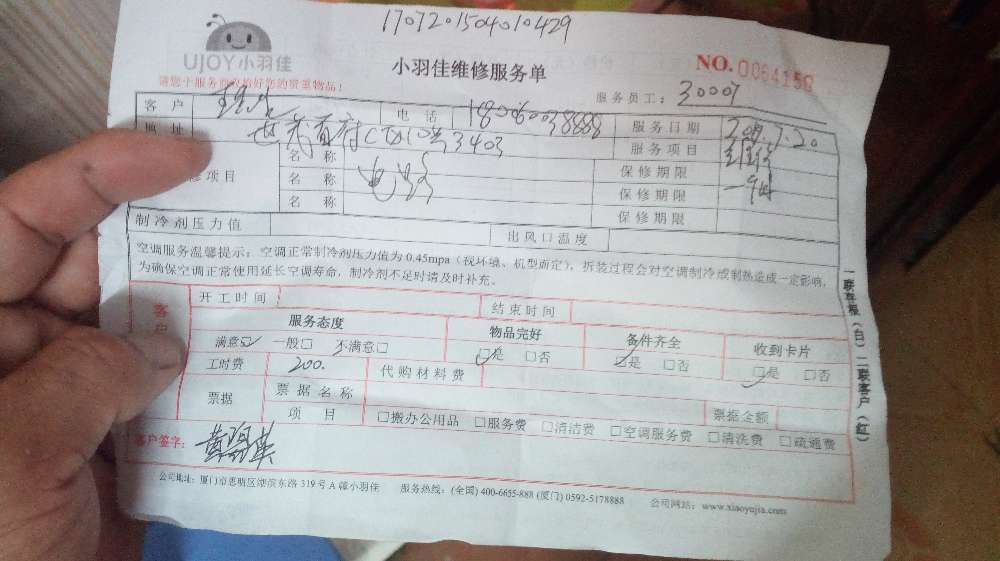 170720150401０429
UJOY小羽佳
小羽佳维修服务单
NO. 0064150
请您于服务前收拾好您的贵重物品！
服务员工： 30007
客户 电话 18006038888 服务日期 2017.7.20
地址 3403 服务项目
维修项目 名称 保修期限
名称 电路 保修期限 一年
名称 保修期限
制冷剂压力值 出风口温度
空调服务温馨提示：空调正常制冷剂压力值为 0.45mpa（视环境、机型而定），拆装过程会对空调制冷或制热造成一定影响，
为确保空调正常使用延长空调寿命，制冷剂不足时请及时补充。
客户 开工时间 结束时间
服务态度 物品完好 备件齐全 收到卡片
满意☑ 一般□ 不满意□ ☑是 □否 ☑是 □否 ☑是 □否
工时费 200. 代购材料费
票据 票据名称 票据金额
项目 □搬办公用品 □服务费 □清洁费 □空调服务费 □清洗费 □疏通费
客户签字：
公司地址：厦门市思明区湖滨东路 319 号 A 幢小羽佳 服务热线：(全国) 400-6655-888 (厦门) 0592-5178888 公司网站：www.xiaoyujia.com
一联存根（白）二联客户（红）